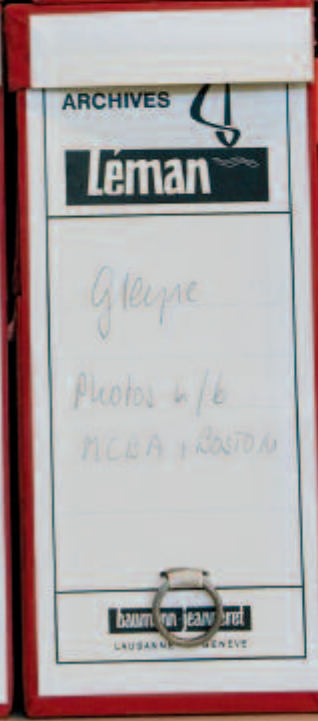 ARCHIVES
Léman
Gleyre
Photos n/b
MCBA + BOSTON
baumann jeanneret
LAUSANNE GENÈVE